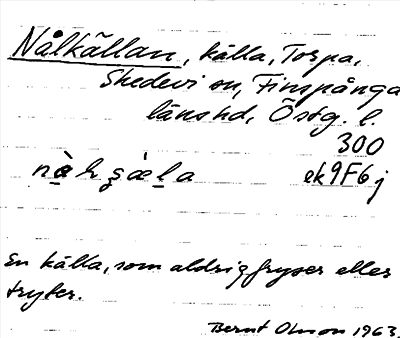 Nålkällan, källa, Torpa,
Skedevi sn, Finspånga
länshd, Östg. l.
300
ek9F6j
En källa, som aldrig fryser eller
tryter.
Bernt Olsson 1963.